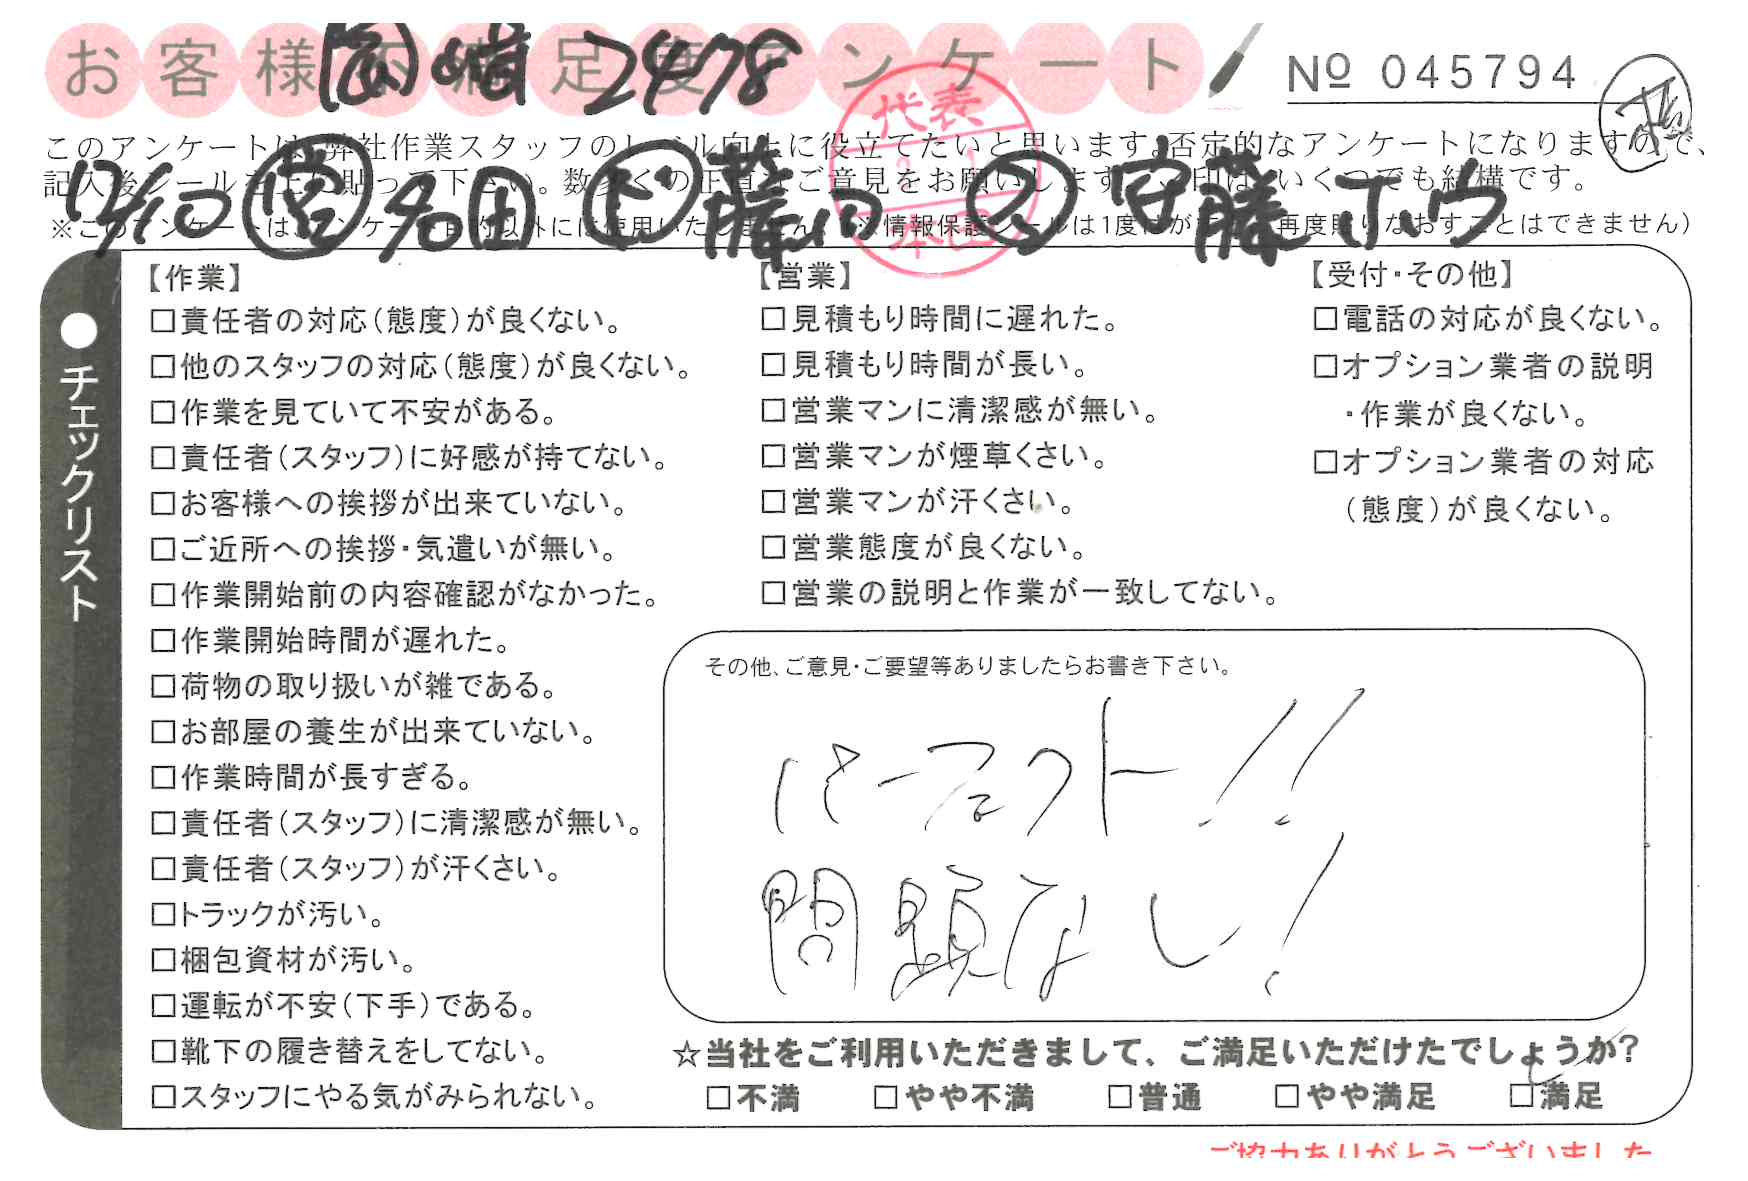 お客様不満足度アンケート
(高)崎 2478
№ 045794
このアンケートは、弊社作業スタッフのレベル向上に役立てたいと思います。否定的なアンケートになりますので、
記入後シールを上に貼って下さい。数多くの正直なご意見をお願いします。✓印は、いくつでも結構です。
12/10 営 名田 ド 藤田 ス 安藤 ホウ
代表
本田
【作業】
□責任者の対応(態度)が良くない。
□他のスタッフの対応(態度)が良くない。
□作業を見ていて不安がある。
□責任者(スタッフ)に好感が持てない。
□お客様への挨拶が出来ていない。
□ご近所への挨拶・気遣いが無い。
□作業開始前の内容確認がなかった。
□作業開始時間が遅れた。
□荷物の取り扱いが雑である。
□お部屋の養生が出来ていない。
□作業時間が長すぎる。
□責任者(スタッフ)に清潔感が無い。
□責任者(スタッフ)が汗くさい。
□トラックが汚い。
□梱包資材が汚い。
□運転が不安(下手)である。
□靴下の履き替えをしてない。
□スタッフにやる気がみられない。
【営業】
□見積もり時間に遅れた。
□見積もり時間が長い。
□営業マンに清潔感が無い。
□営業マンが煙草くさい。
□営業マンが汗くさい。
□営業態度が良くない。
□営業の説明と作業が一致してない。
【受付・その他】
□電話の対応が良くない。
□オプション業者の説明
・作業が良くない。
□オプション業者の対応
(態度)が良くない。
●チェックリスト
その他、ご意見・ご要望等ありましたらお書き下さい。
パーフェクト!!
問題なし!
☆当社をご利用いただきまして、ご満足いただけたでしょうか?
□不満 □やや不満 □普通 □やや満足 □満足
ご協力ありがとうございました